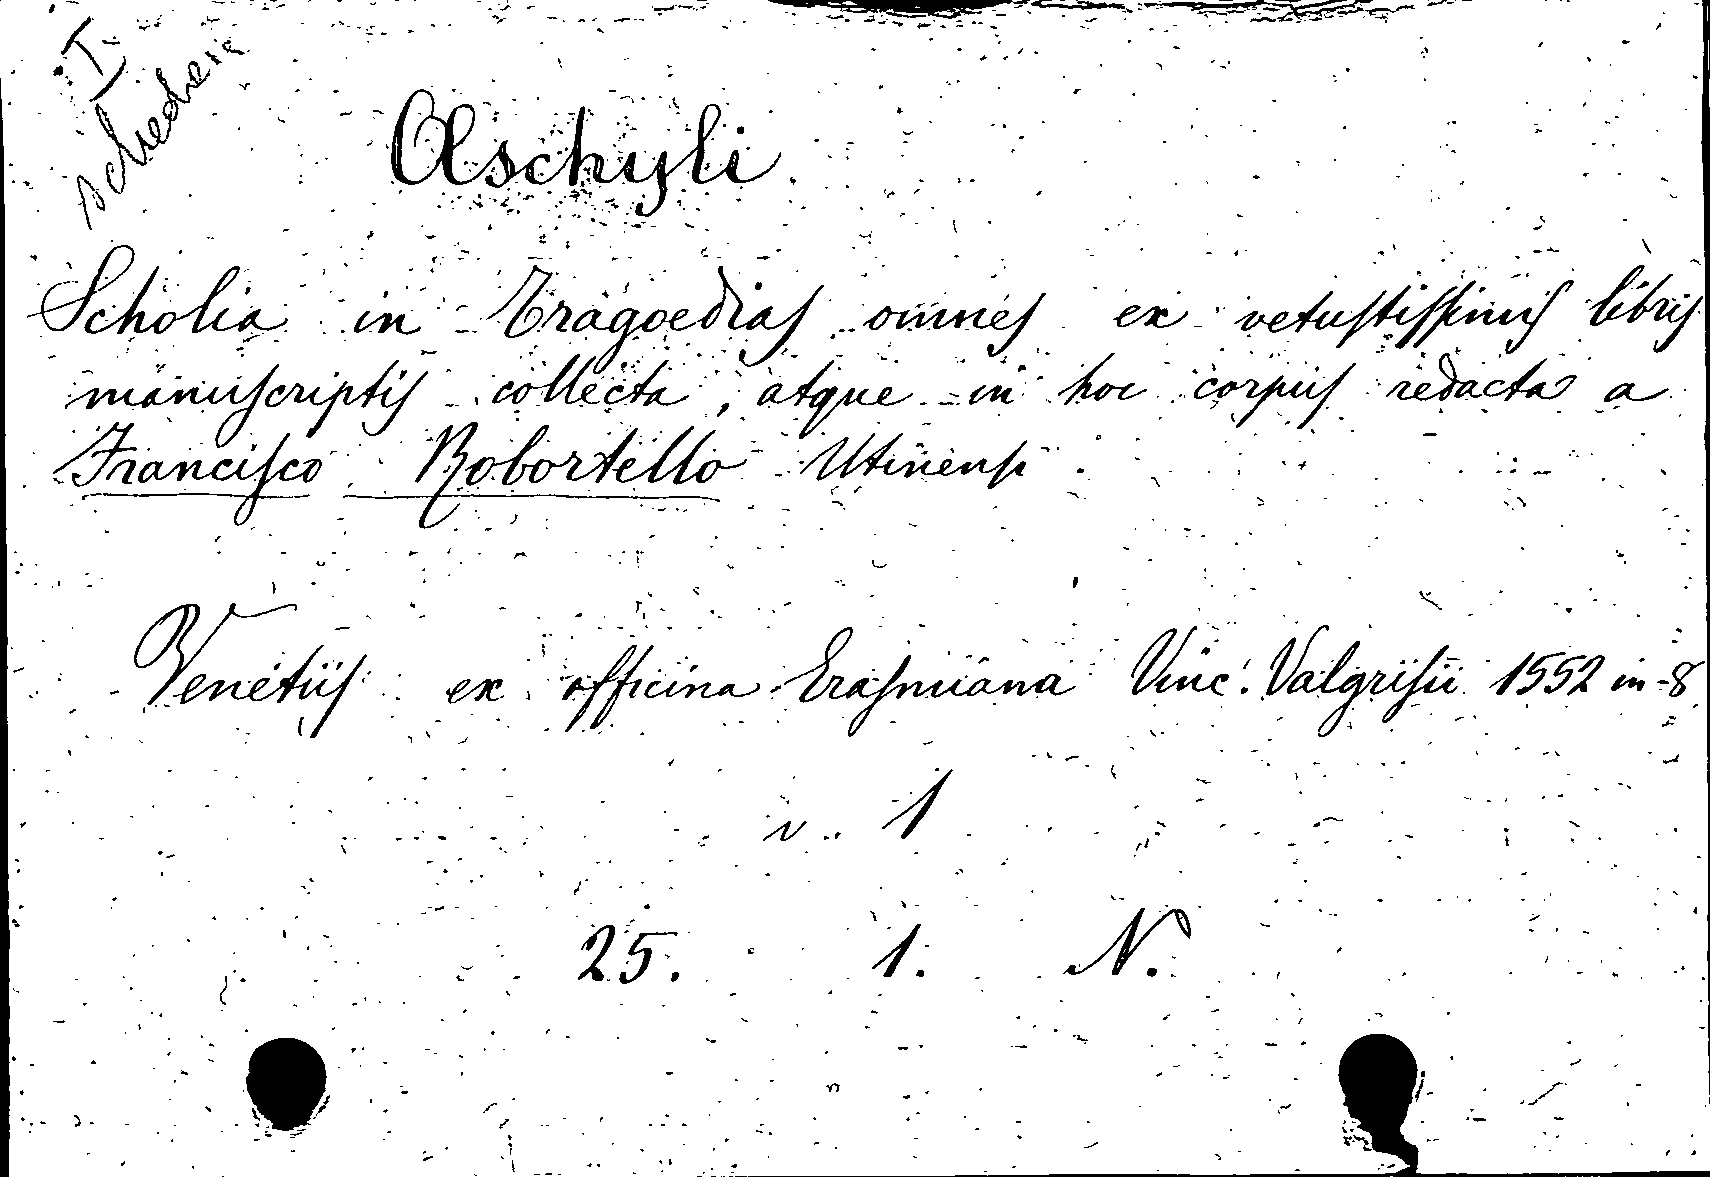 I
schedera
Æschyli
Scholia in Tragoedias omnes ex vetustissimis libris
manuscriptis collecta, atque in hoc corpus redacta a
Francisco Robortello Utinensi
Venetiis ex officina Erasmiana Vinc. Valgrisii 1552 in-8
v. 1
25. 1. N.